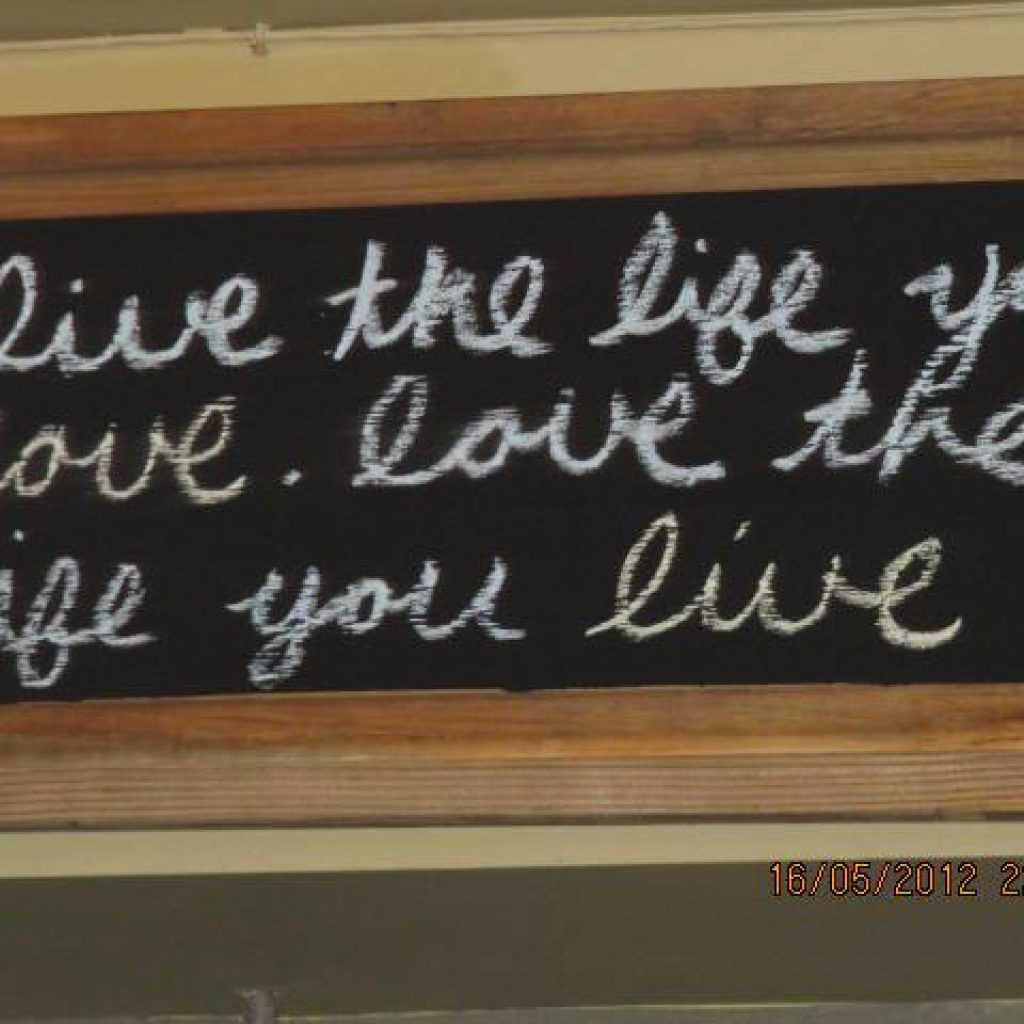 live the life y
love. love the
life you live
16/05/2012 2